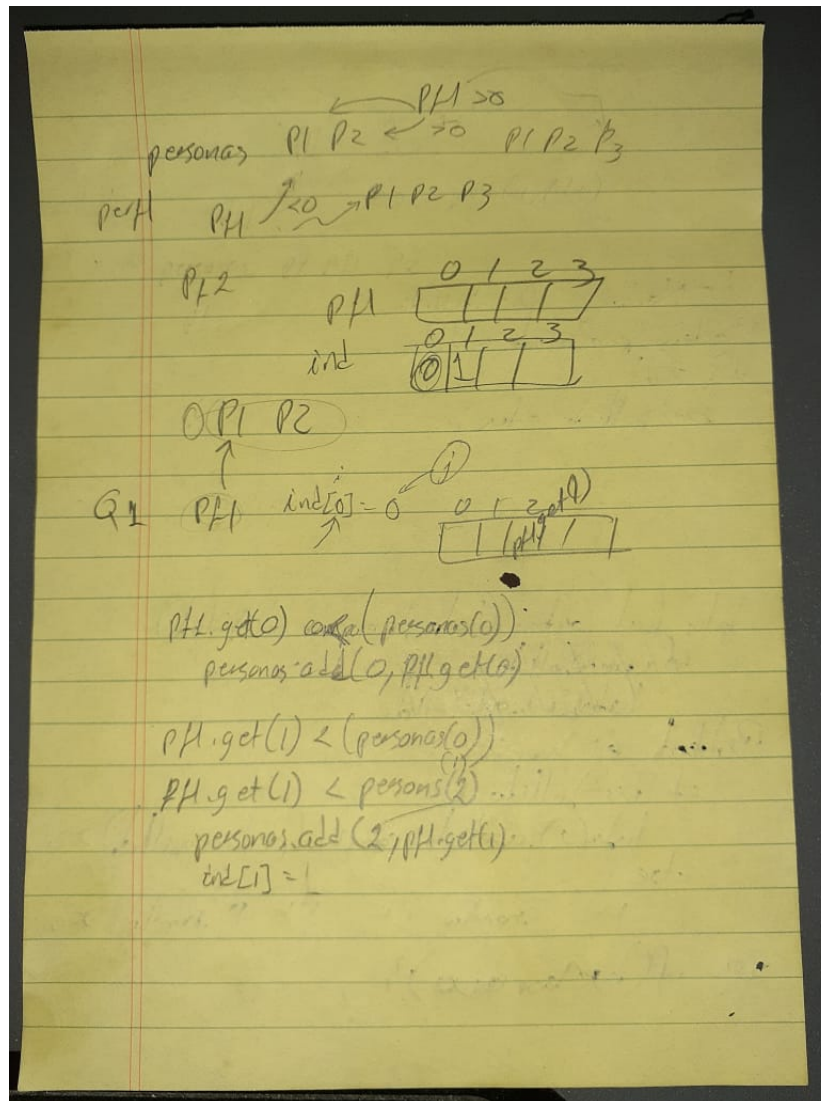 Pf1 >0
personas P1 P2 >0 P1 P2 P3
perf1 Pf1 <0 P1 P2 P3
Pf2
0 1 2 3
pf1
0 1 2 3
ind 0 1
0 P1 P2
i j
Q1 Pf1 ind[0] = 0 0 1 2
pf1.get(
pf1.get(0) (personas(0))
personas.add(0, Pf1.get(0)
pf1.get(1) < (personas(0))
(1)
pf1.get(1) < persons(2)
personas.add(2, pf1.get(1)
ind[1] = 1